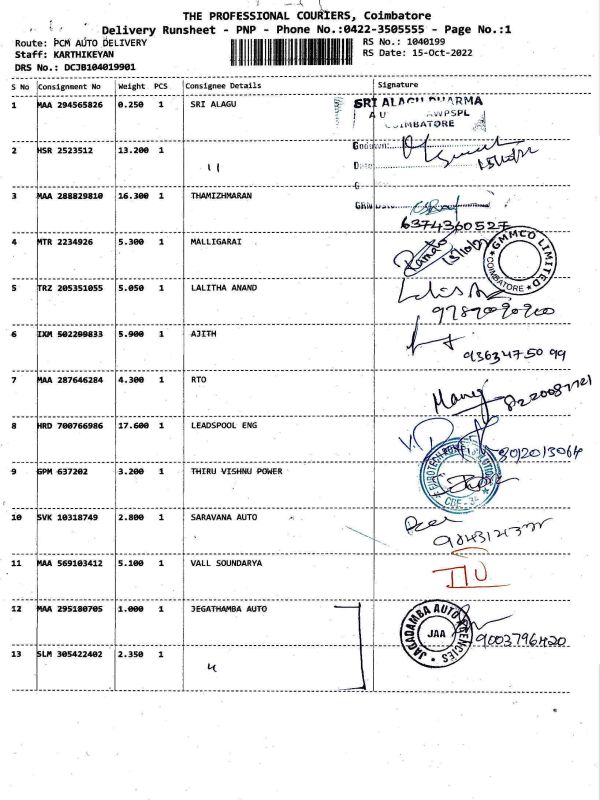 THE PROFESSIONAL COURIERS, Coimbatore
Delivery Runsheet - PNP - Phone No.:0422-3505555 - Page No.:1
Route: PCM AUTO DELIVERY RS No.: 1040199
Staff: KARTHIKEYAN RS Date: 15-Oct-2022
DRS No.: DCJB104019901
S No Consignment No Weight PCS Consignee Details Signature
1 MAA 294565826 0.250 1 SRI ALAGU
SRI ALAGU DHARMA
AWPSPL
COIMBATORE
2 HSR 2523512 13.200 1 11
Godown
Date
15/10/22
3 MAA 288829810 16.300 1 THAMIZHMARAN
GRN Date
6374360527
4 MTR 2234926 5.300 1 MALLIGARAI
GMMCO LIMITED
COIMBATORE
5 TRZ 205351055 5.050 1 LALITHA ANAND
6 IXM 502299833 5.900 1 AJITH
9363475099
7 MAA 287646284 4.300 1 RTO
8 HRD 700766986 17.600 1 LEADSPOOL ENG
9 GPM 637202 3.200 1 THIRU VISHNU POWER
10 SVK 10318749 2.800 1 SARAVANA AUTO
11 MAA 569103412 5.100 1 VALL SOUNDARYA
12 MAA 295180705 1.000 1 JEGATHAMBA AUTO
JAGADAMBA AUTO AGENCIES
JAA
9003796420
13 SLM 305422402 2.350 1